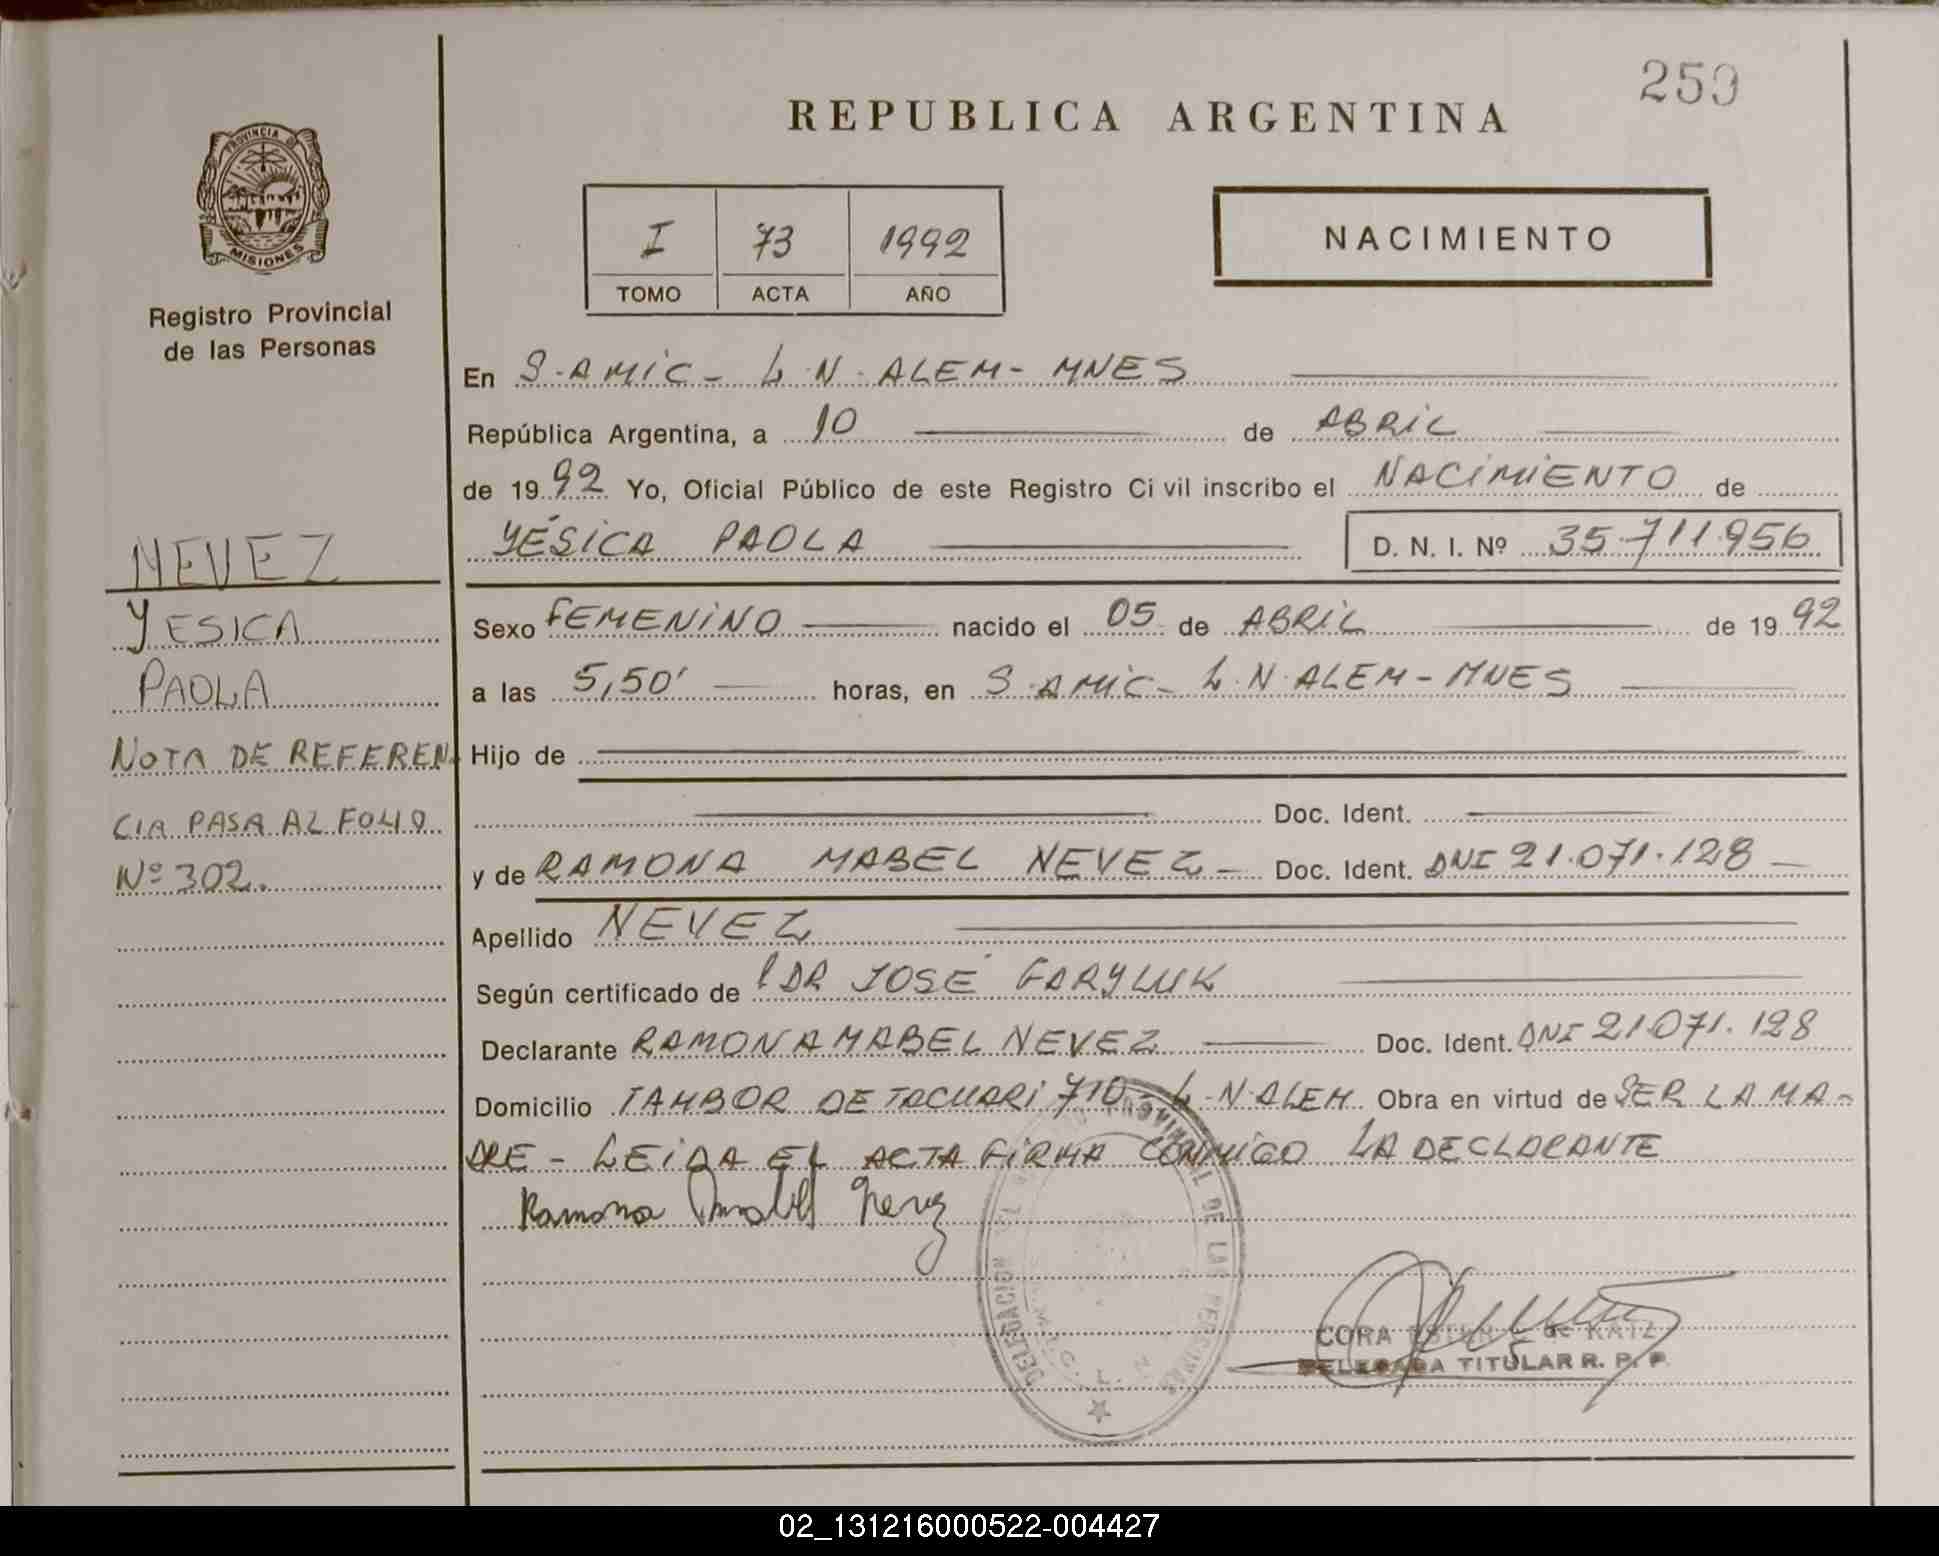 259
REPUBLICA ARGENTINA
PROVINCIA DE
MISIONES
I 73 1992
TOMO ACTA AÑO
NACIMIENTO
Registro Provincial
de las Personas
En S.AMIC - L.N.ALEM - MNES
República Argentina, a 10 de ABRIL
de 1992 Yo, Oficial Público de este Registro Civil inscribo el NACIMIENTO de
YÉSICA PAOLA D. N. I. Nº 35.711.956
NEVEZ
YESICA
PAOLA
NOTA DE REFEREN-
CIA PASA AL FOLIO
Nº 302.
Sexo FEMENINO nacido el 05 de ABRIL de 1992
a las 5,50' horas, en S.AMIC - L.N.ALEM - MNES
Hijo de
Doc. Ident.
y de RAMONA MABEL NEVEZ - Doc. Ident. DNI 21.071.128 -
Apellido NEVEZ
Según certificado de DR JOSÉ GARYLUK
Declarante RAMONA MABEL NEVEZ Doc. Ident. DNI 21.071.128
Domicilio TAMBOR DE TACUARI 710 - L.N.ALEM Obra en virtud de SER LA MA-
DRE - LEIDA EL ACTA FIRMA CONMIGO LA DECLARANTE
Ramona Mabel Nevez
DELEGACION PROVINCIAL DE LAS PERSONAS
CORA ESTER de KATZ
DELEGADA TITULAR R. P. P.
02_131216000522-004427